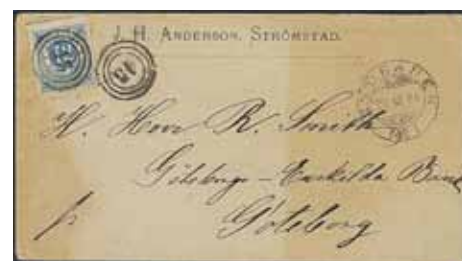 J. H. ANDERSON. STRÖMSTAD.
15
H. Herr R. Smith
Göteborgs - Enskilda Bank
Göteborg